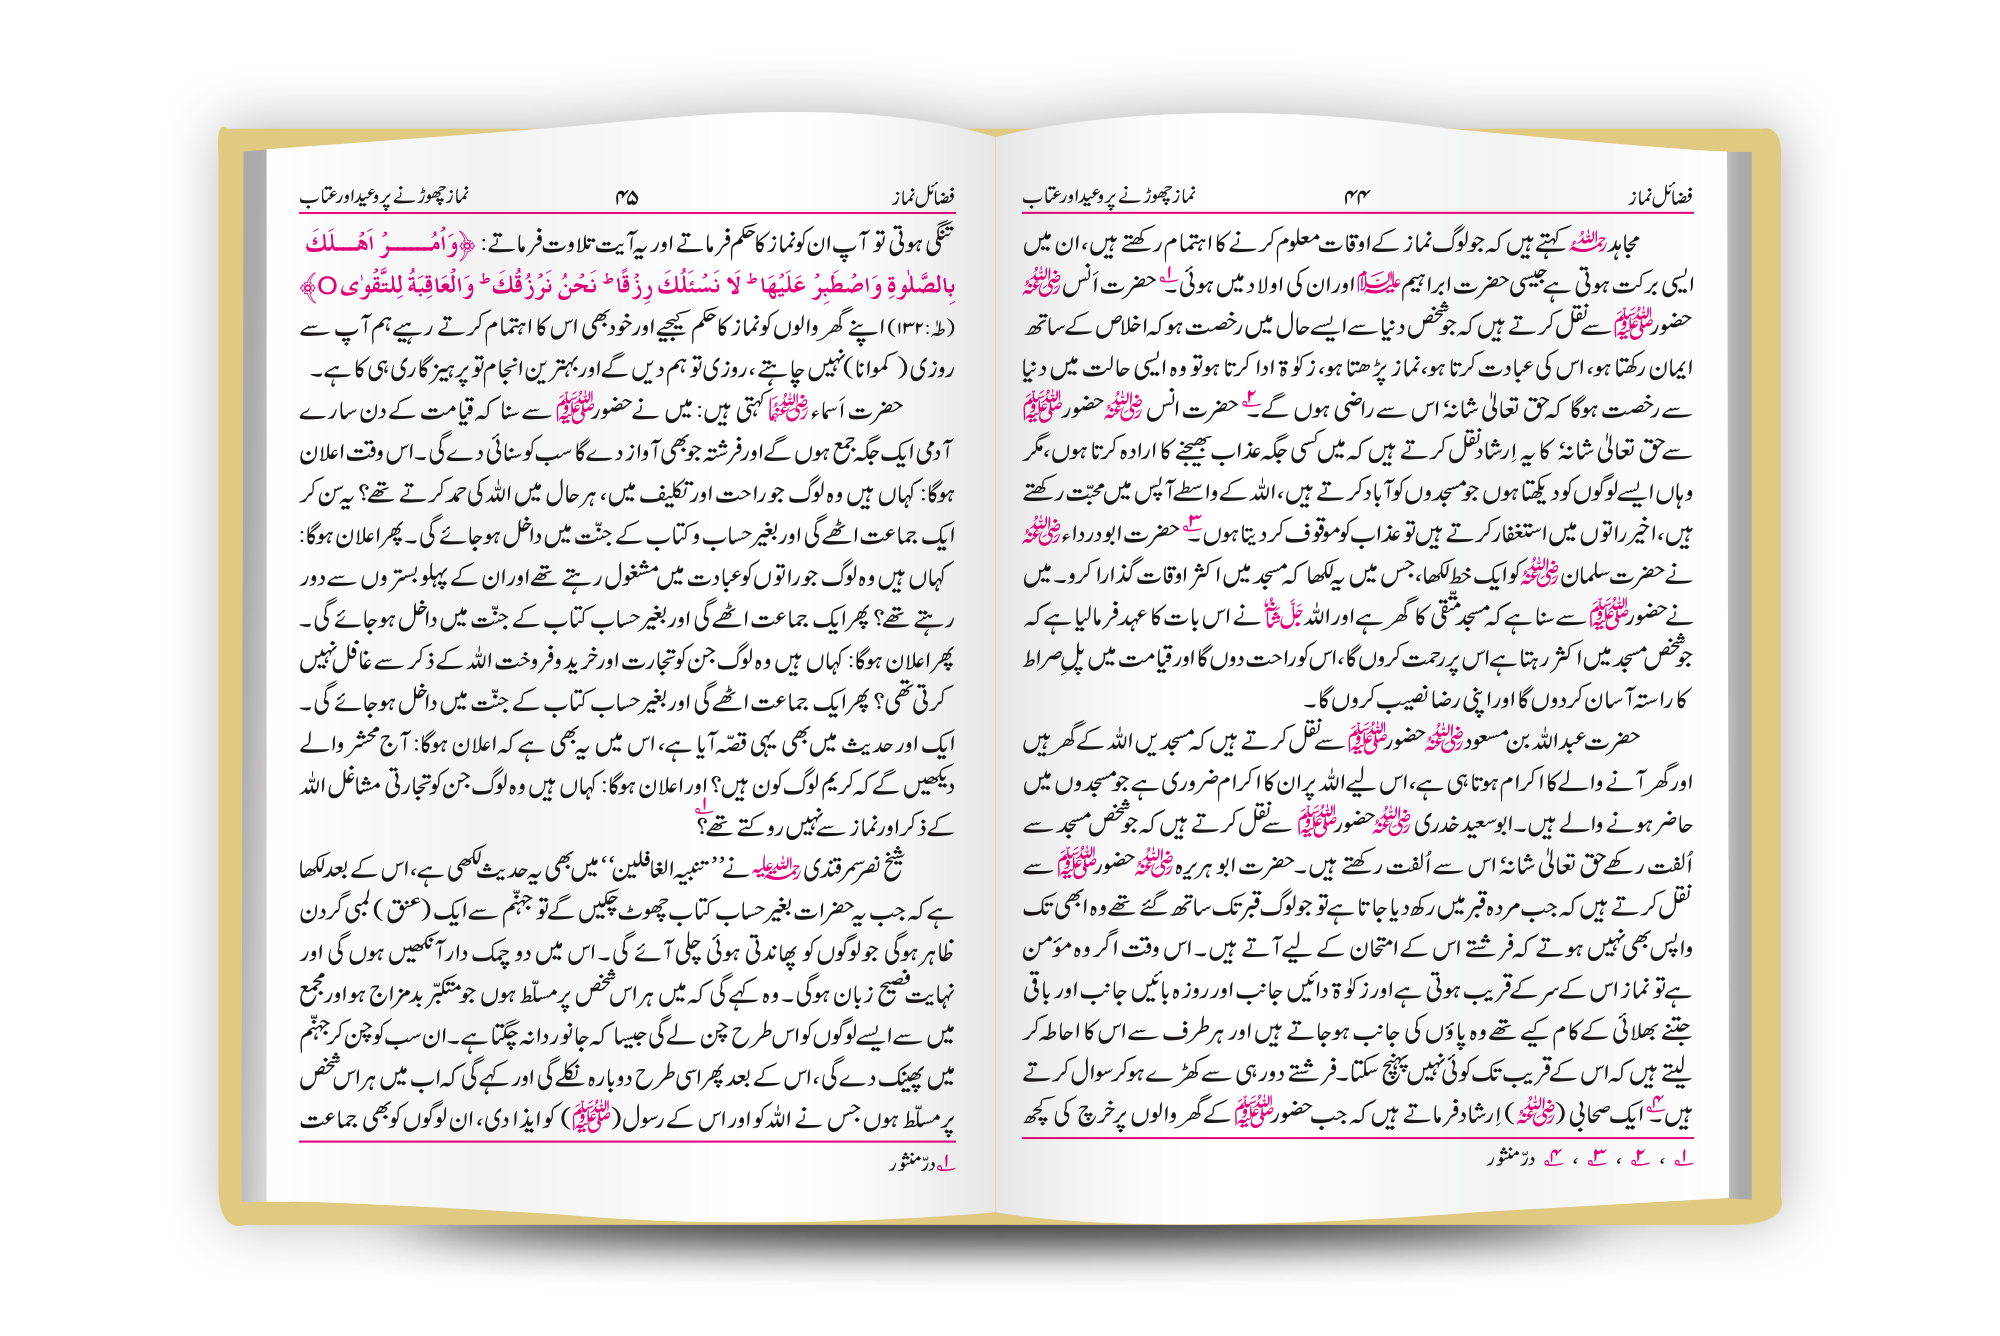 فضائل نماز ۴۴ نماز چھوڑنے پر وعید اور عتاب
مجاہد رحمہ اللہ کہتے ہیں کہ جو لوگ نماز کے اوقات معلوم کرنے کا اہتمام رکھتے ہیں، ان میں
ایسی برکت ہوتی ہے جیسی حضرت ابراہیم علیہ السلام اور ان کی اولاد میں ہوئی۔ ۱؎ حضرت اَنس رضی اللہ عنہ
حضور ﷺ سے نقل کرتے ہیں کہ جو شخص دنیا سے ایسے حال میں رخصت ہو کہ اخلاص کے ساتھ
ایمان رکھتا ہو، اس کی عبادت کرتا ہو، نماز پڑھتا ہو، زکوٰۃ ادا کرتا ہو تو وہ ایسی حالت میں دنیا
سے رخصت ہوگا کہ حق تعالیٰ شانہٗ اس سے راضی ہوں گے۔ ۲؎ حضرت انس رضی اللہ عنہ حضور ﷺ
سے حق تعالیٰ شانہٗ کا یہ اِرشاد نقل کرتے ہیں کہ میں کسی جگہ عذاب بھیجنے کا ارادہ کرتا ہوں، مگر
وہاں ایسے لوگوں کو دیکھتا ہوں جو مسجدوں کو آباد کرتے ہیں، اللہ کے واسطے آپس میں محبّت رکھتے
ہیں، اخیر راتوں میں استغفار کرتے ہیں تو عذاب کو موقوف کر دیتا ہوں۔ ۳؎ حضرت ابودرداء رضی اللہ عنہ
نے حضرت سلمان رضی اللہ عنہ کو ایک خط لکھا، جس میں یہ لکھا کہ مسجد میں اکثر اوقات گذارا کرو۔ میں
نے حضور ﷺ سے سنا ہے کہ مسجد متّقی کا گھر ہے اور اللہ جَلَّ شَانُہٗ نے اس بات کا عہد فرما لیا ہے کہ
جو شخص مسجد میں اکثر رہتا ہے اس پر رحمت کروں گا، اس کو راحت دوں گا اور قیامت میں پلِ صراط
کا راستہ آسان کر دوں گا اور اپنی رضا نصیب کروں گا۔
حضرت عبد اللہ بن مسعود رضی اللہ عنہ حضور ﷺ سے نقل کرتے ہیں کہ مسجدیں اللہ کے گھر ہیں
اور گھر آنے والے کا اکرام ہوتا ہی ہے، اس لیے اللہ پر ان کا اکرام ضروری ہے جو مسجدوں میں
حاضر ہونے والے ہیں۔ ابوسعید خدری رضی اللہ عنہ حضور ﷺ سے نقل کرتے ہیں کہ جو شخص مسجد سے
اُلفت رکھے حق تعالیٰ شانہٗ اس سے اُلفت رکھتے ہیں۔ حضرت ابو ہریرہ رضی اللہ عنہ حضور ﷺ سے
نقل کرتے ہیں کہ جب مردہ قبر میں رکھ دیا جاتا ہے تو جو لوگ قبر تک ساتھ گئے تھے وہ ابھی تک
واپس بھی نہیں ہوتے کہ فرشتے اس کے امتحان کے لیے آتے ہیں۔ اس وقت اگر وہ مؤمن
ہے تو نماز اس کے سر کے قریب ہوتی ہے اور زکوٰۃ دائیں جانب اور روزہ بائیں جانب اور باقی
جتنے بھلائی کے کام کیے تھے وہ پاؤں کی جانب ہو جاتے ہیں اور ہر طرف سے اس کا احاطہ کر
لیتے ہیں کہ اس کے قریب تک کوئی نہیں پہنچ سکتا۔ فرشتے دور ہی سے کھڑے ہو کر سوال کرتے
ہیں۔ ۴؎ ایک صحابی (رضی اللہ عنہ) اِرشاد فرماتے ہیں کہ جب حضور ﷺ کے گھر والوں پر خرچ کی کچھ
۱؎ ، ۲؎ ، ۳؎ ، ۴؎ درّ منثور
فضائل نماز ۴۵ نماز چھوڑنے پر وعید اور عتاب
تنگی ہوتی تو آپ ان کو نماز کا حکم فرماتے اور یہ آیت تلاوت فرماتے: ﴿وَاْمُرْ اَهْلَكَ
بِالصَّلٰوةِ وَاصْطَبِرْ عَلَيْهَا ؕ لَا نَسْئَلُكَ رِزْقًا ؕ نَحْنُ نَرْزُقُكَ ؕ وَالْعَاقِبَةُ لِلتَّقْوٰى ○﴾
(طہٰ: ۱۳۲) اپنے گھر والوں کو نماز کا حکم کیجیے اور خود بھی اس کا اہتمام کرتے رہیے ہم آپ سے
روزی (کموانا) نہیں چاہتے، روزی تو ہم دیں گے اور بہترین انجام تو پرہیزگاری ہی کا ہے۔
حضرت اَسماء رضی اللہ عنہا کہتی ہیں: میں نے حضور ﷺ سے سنا کہ قیامت کے دن سارے
آدمی ایک جگہ جمع ہوں گے اور فرشتہ جو بھی آواز دے گا سب کو سنائی دے گی۔ اس وقت اعلان
ہوگا: کہاں ہیں وہ لوگ جو راحت اور تکلیف میں، ہر حال میں اللہ کی حمد کرتے تھے؟ یہ سن کر
ایک جماعت اٹھے گی اور بغیر حساب و کتاب کے جنّت میں داخل ہو جائے گی۔ پھر اعلان ہوگا:
کہاں ہیں وہ لوگ جو راتوں کو عبادت میں مشغول رہتے تھے اور ان کے پہلو بستروں سے دور
رہتے تھے؟ پھر ایک جماعت اٹھے گی اور بغیر حساب کتاب کے جنّت میں داخل ہو جائے گی۔
پھر اعلان ہوگا: کہاں ہیں وہ لوگ جن کو تجارت اور خرید و فروخت اللہ کے ذکر سے غافل نہیں
کرتی تھی؟ پھر ایک جماعت اٹھے گی اور بغیر حساب کتاب کے جنّت میں داخل ہو جائے گی۔
ایک اور حدیث میں بھی یہی قصّہ آیا ہے، اس میں یہ بھی ہے کہ اعلان ہوگا: آج محشر والے
دیکھیں گے کہ کریم لوگ کون ہیں؟ اور اعلان ہوگا: کہاں ہیں وہ لوگ جن کو تجارتی مشاغل اللہ
کے ذکر اور نماز سے نہیں روکتے تھے؟ ۱؎
شیخ نصر سمرقندی رحمۃ اللہ علیہ نے ’’تنبیہ الغافلین‘‘ میں بھی یہ حدیث لکھی ہے، اس کے بعد لکھا
ہے کہ جب یہ حضرات بغیر حساب کتاب چھوٹ چکیں گے تو جہنّم سے ایک (عنق) لمبی گردن
ظاہر ہوگی جو لوگوں کو پھاندتی ہوئی چلی آئے گی۔ اس میں دو چمک دار آنکھیں ہوں گی اور
نہایت فصیح زبان ہوگی۔ وہ کہے گی کہ میں ہر اس شخص پر مسلّط ہوں جو متکبّر بدمزاج ہو اور مجمع
میں سے ایسے لوگوں کو اس طرح چن لے گی جیسا کہ جانور دانہ چگتا ہے۔ ان سب کو چن کر جہنّم
میں پھینک دے گی، اس کے بعد پھر اسی طرح دوبارہ نکلے گی اور کہے گی کہ اب میں ہر اس شخص
پر مسلّط ہوں جس نے اللہ کو اور اس کے رسول (ﷺ) کو ایذا دی، ان لوگوں کو بھی جماعت
۱؎ درّ منثور